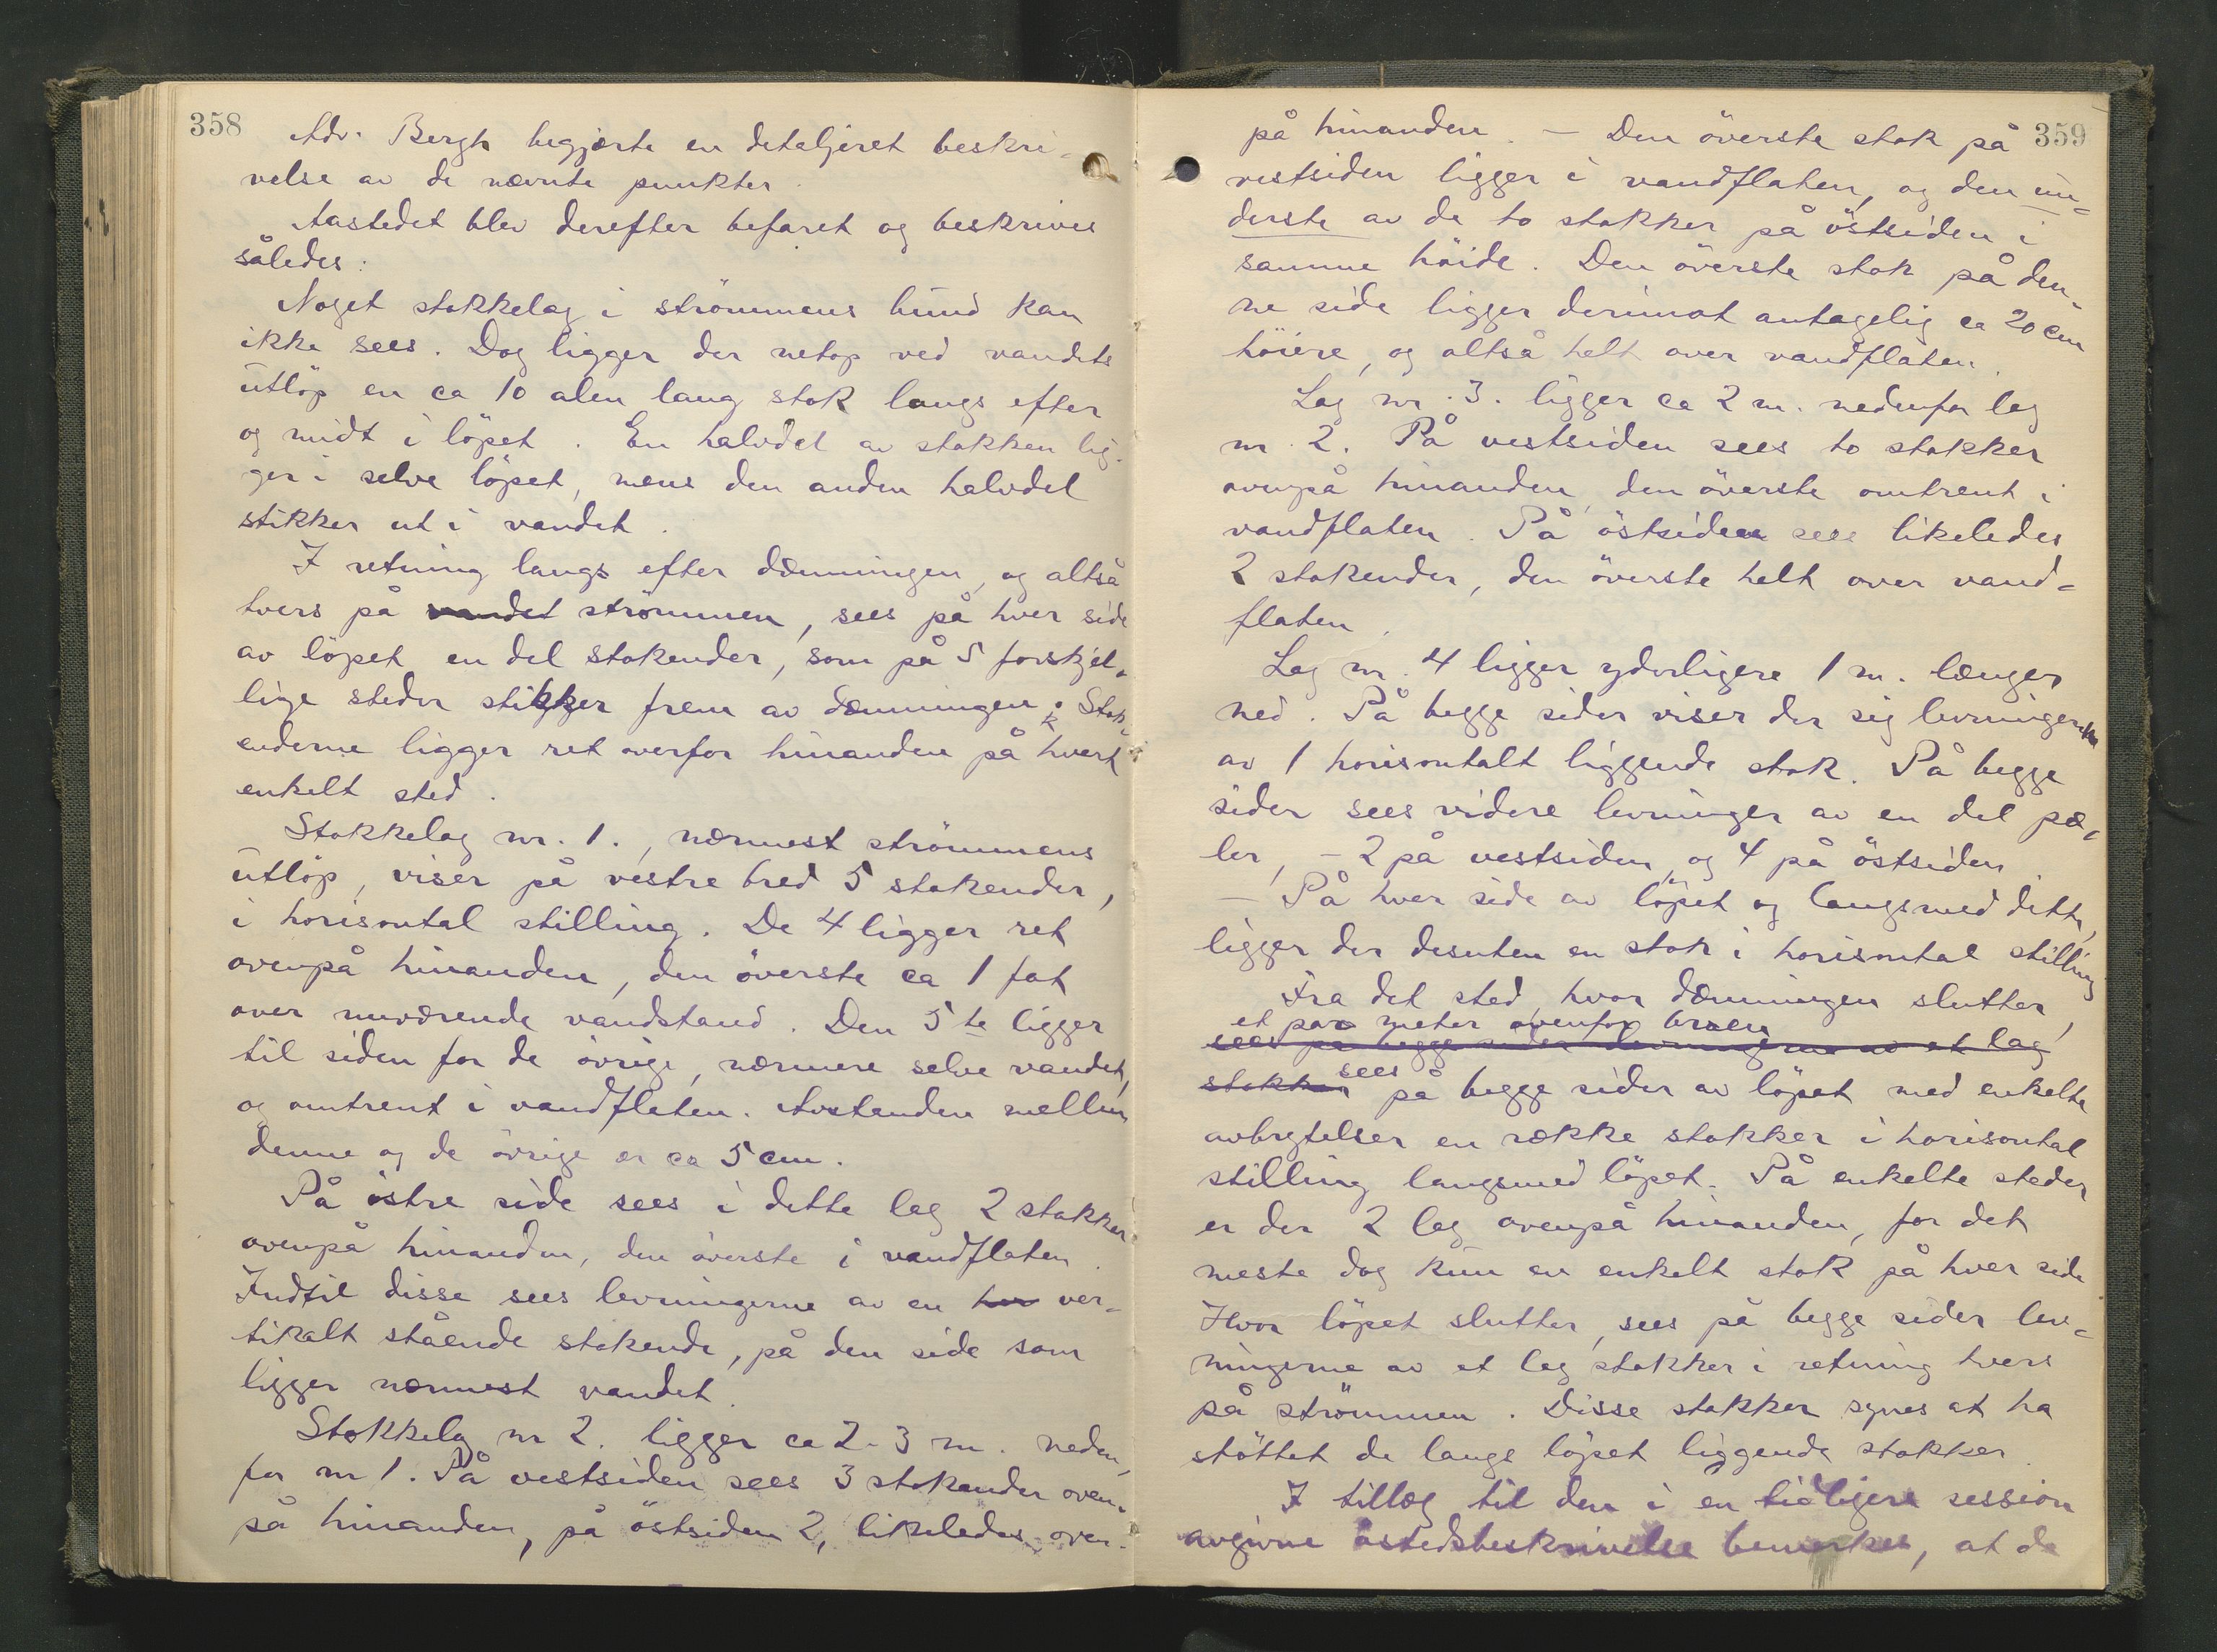 358
Adv. Bergh begjærte en detaljeret beskri-
velse av de nævnte punkter.
Aastedet blev derefter befaret og beskrives
således:
Noget stokkelag i strömmens bund kan
ikke sees. Dog ligger der netop ved vandets
utlöp en ca 10 alen lang stok langs efter
og midt i löpet. En halvdel av stokken lig-
ger i selve löpet, mens den anden halvdel
stikker ut i vandet.
I retning langs efter dæmningen, og altså
tvers på vandet strömmen, sees på hver side
av löpet en del stokender, som på 5 forskjel-
lige steder stikker frem av dæmningen. Stok-
enderne ligger ret overfor hinanden på hvert
enkelt sted.
Stokkelag nr. 1., nærmest strömmens
utlöp, viser på vestre bred 5 stokender,
i horisontal stilling. De 4 ligger ret
ovenpå hinanden, den överste ca 1 fot
over nuværende vandstand. Den 5te ligger
til siden for de övrige, nærmere selve vandet,
og omtrent i vandflaten. Avstanden mellem
denne og de övrige er ca 5 cm.
På östre side sees i dette lag 2 stokker
ovenpå hinanden, den överste i vandflaten.
Indtil disse sees levningerne av en hor ver-
tikalt stående stokende, på den side som
ligger nærmest vandet.
Stokkelag nr 2. ligger ca 2-3 m. neden-
for nr 1. På vestsiden sees 3 stokender oven-
på hinanden, på östsiden 2, likeledes oven-
359
på hinanden. — Den överste stok på
vestsiden ligger i vandflaten, og den un-
derste av de to stokker på östsiden i
samme höide. Den överste stok på den-
ne side ligger derimot antagelig ca 20 cm
höiere, og altså helt over vandflaten.
Lag nr. 3. ligger ca 2 m. nedenfor lag
nr. 2. På vestsiden sees to stokker
ovenpå hinanden, den överste omtrent i
vandflaten. På östsiden sees likeledes
2 stokender, den överste helt over vand-
flaten.
Lag nr. 4 ligger yderligere 1 m. længer
ned. På begge sider viser der sig levningerne
av 1 horisontalt liggende stok. På begge
sider sees videre levninger av en del pæ-
ler, - 2 på vestsiden, og 4 på östsiden.
— På hver side av löpet og langsmed dette,
ligger der desuten en stok i horisontal stilling
Fra det sted, hvor dæmningen slutter,
et par meter ovenfor broen
sees på begge sider levningerne av et lag
stokker sees på begge sider av löpet med enkelte
avbrytelser en række stokker i horisontal
stilling langsmed löpet. På enkelte steder
er der 2 lag ovenpå hinanden, for det
meste dog kun en enkelt stok på hver side
Hvor löpet slutter, sees på begge sider lev-
ningerne av et lag stokker i retning tvers
på strömmen. Disse stokker synes at ha
stöttet de langs löpet liggende stokker.
I tillæg til den i en tidligere session
avgivne åstedsbeskrivelse bemerkes, at de